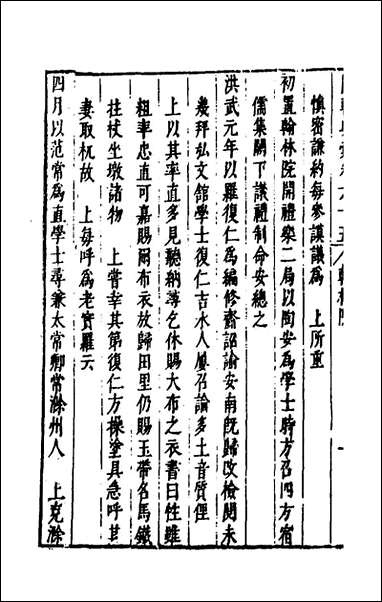 慎密謙約每參謨議爲　上所重
初置翰林院開禮樂二局以陶安爲學士時方召四方宿
儒集闕下議禮制命安總之
洪武元年以羅復仁爲編修齎詔諭安南既歸改檢閱未
幾拜弘文館學士復仁吉水人凡召諭多土音質俚
上以其率直多見聽納尋乞休賜大布之衣書曰性雖
粗率忠直可嘉賜爾布衣放歸田里仍賜玉帶名馬鐵
拄杖坐墩諸物　上嘗幸其第復仁方操塗具急呼其
妻取杌故　上每呼爲老實羅云
四月以范常爲直學士尋兼太常卿常滁州人　上克滁